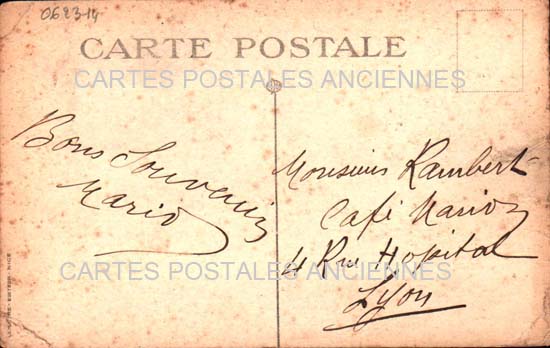 0623-14
CARTE POSTALE
CARTES POSTALES ANCIENNES
Bons Souvenirs
Mario
Monsieur Rambert
Café Mario
4 Rue Hopital
Lyon
CARTES POSTALES ANCIENNES